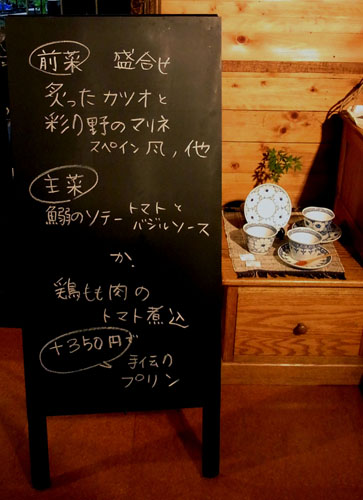 前菜 盛合せ
炙ったカツオと
彩り野のマリネ
スペイン風,他
主菜
鰯のソテー トマトと
バジルソース
か.
鶏もも肉の
トマト煮込
+350円で
手伝り
プリン